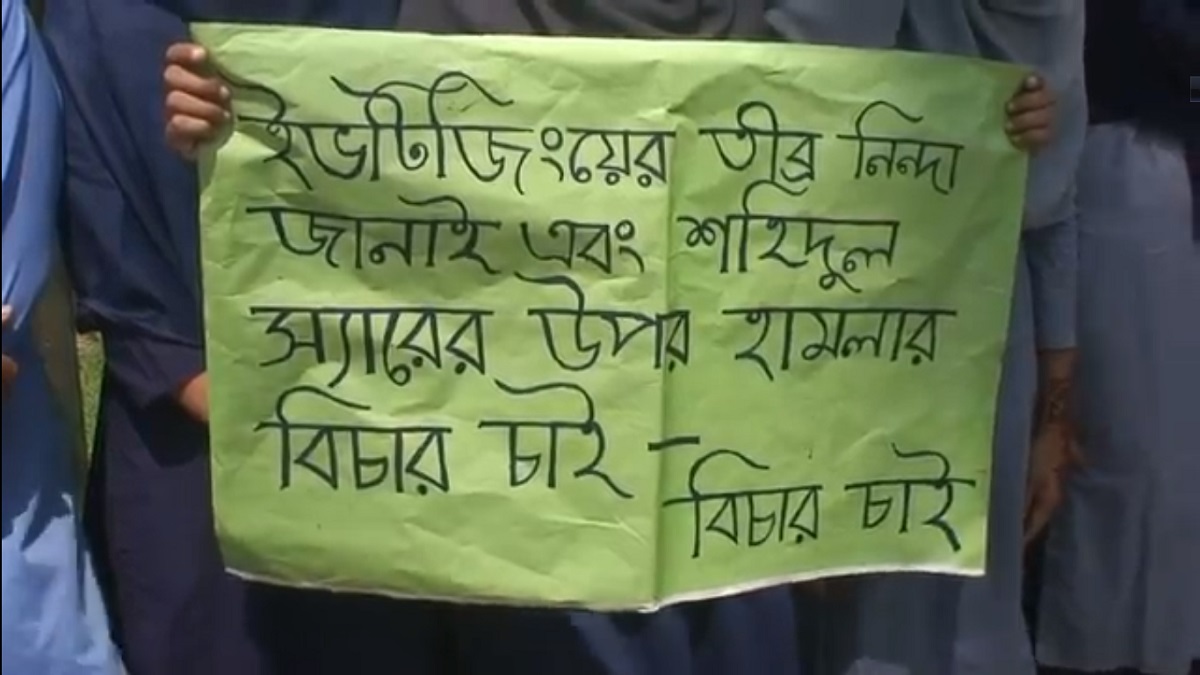 ইভটিজিংয়ের তীব্র নিন্দা
জানাই এবং শহিদুল
স্যারের উপর হামলার
বিচার চাই -
বিচার চাই